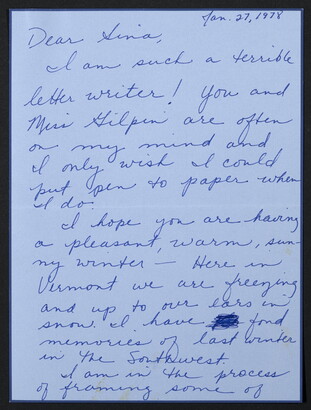 Jan. 27, 1978
Dear Sina,
I am such a terrible
letter writer! You and
Miss Gilpin are often
on my mind and
I only wish I could
put pen to paper when
I do.
I hope you are having
a pleasant, warm, sun-
ny winter — Here in
Vermont we are freezing
and up to our ears in
snow. I have fond
memories of last winter
in the Southwest.
I am in the process
of framing some of